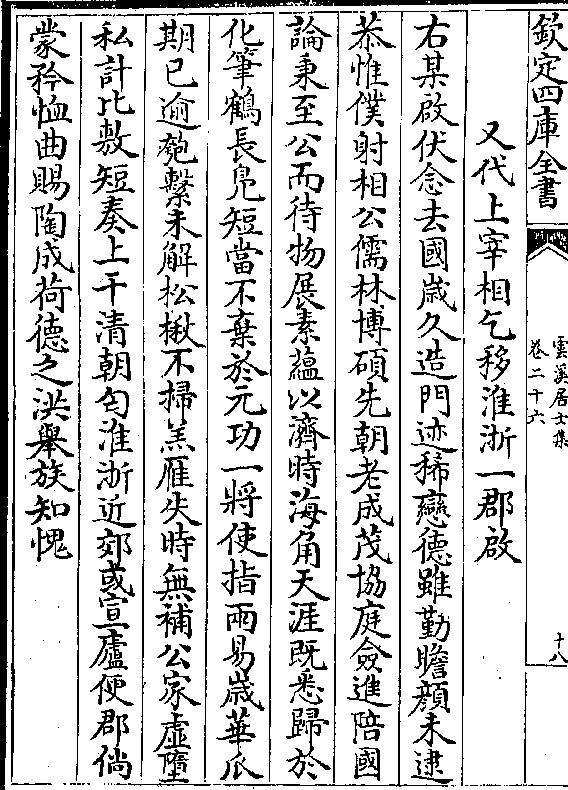 欽定四庫全書
雲溪居士集
卷二十六
十八
又代上宰相乞移淮浙一郡啟
右某啟伏念去國歲久造門迹稀戀德雖勤瞻顔未逮
恭惟僕射相公儒林博碩先朝老成茂協庭僉進陪國
論秉至公而待物展素蘊以濟時海角天涯既悉歸於
化筆鶴長鳬短當不棄於元功一將使指兩易歲華瓜
期已逾匏繫未解松楸不掃羔雁失時無補公家虛墮
私計比敷短奏上干清朝匄淮浙近郊或宣廬便郡倘
蒙矜恤曲賜陶成荷德之洪舉族知愧